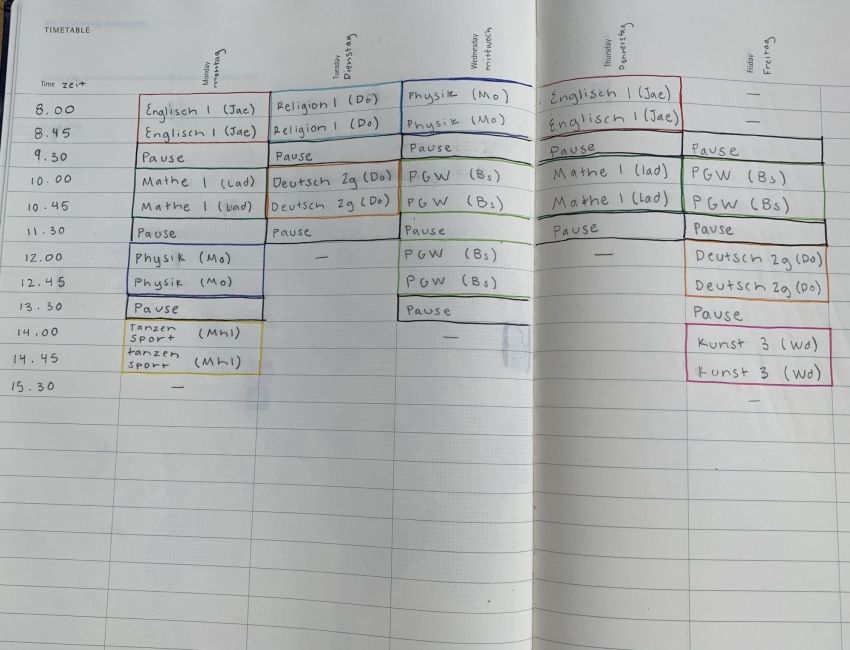 TIMETABLE
Monday Montag Tuesday Dienstag Wednesday mittwoch Thursday Donnerstag Friday Freitag
Time zeit
8.00 Englisch 1 (Jae) Religion 1 (Do) Physik (Mo) Englisch 1 (Jae) —
8.45 Englisch 1 (Jae) Religion 1 (Do) Physik (Mo) Englisch 1 (Jae) —
9.30 Pause Pause Pause Pause Pause
10.00 Mathe 1 (Lad) Deutsch 2g (Do) PGW (Bs) Mathe 1 (lad) PGW (Bs)
10.45 Mathe 1 (Lad) Deutsch 2g (Do) PGW (Bs) Mathe 1 (Lad) PGW (Bs)
11.30 Pause Pause Pause Pause Pause
12.00 Physik (Mo) — PGW (Bs) — Deutsch 2g (Do)
12.45 Physik (Mo) PGW (Bs) Deutsch 2g (Do)
13.30 Pause Pause Pause
14.00 Tanzen Sport (Mhl) — Kunst 3 (Wd)
14.45 tanzen sport (Mhl) Kunst 3 (Wd)
15.30 — —